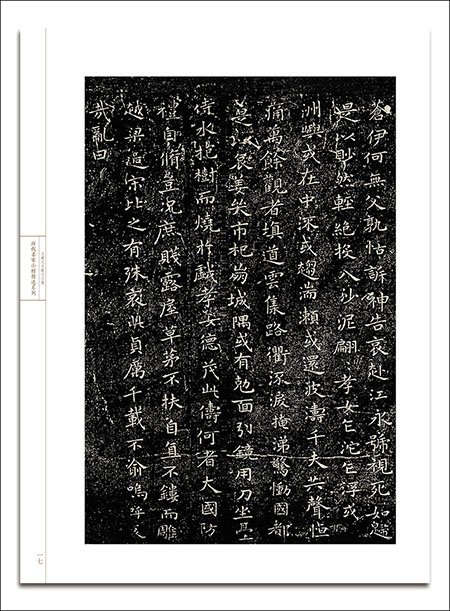 蒼伊何無父孰怙訴神告哀赴江永號視死如歸
是以眇然輕絕投入沙泥翩孝女乍沉乍浮或
洲嶼或在中流或趨湍瀨或還波濤千夫共聲悼
痛萬餘觀者填道雲集路衢流淚掩涕驚慟國都
是以哀姜哭市杞崩城隅或有剋面引鏡用刀坐臺
待水抱樹而燒於戲孝女德茂此儔何者大國防
禮自脩豈況庶賤露屋草茅不扶自直不鏤而雕
越梁過宋比之有殊哀此貞厲千載不渝嗚呼哀
哉亂曰
歷代名家小楷精選系列
一七